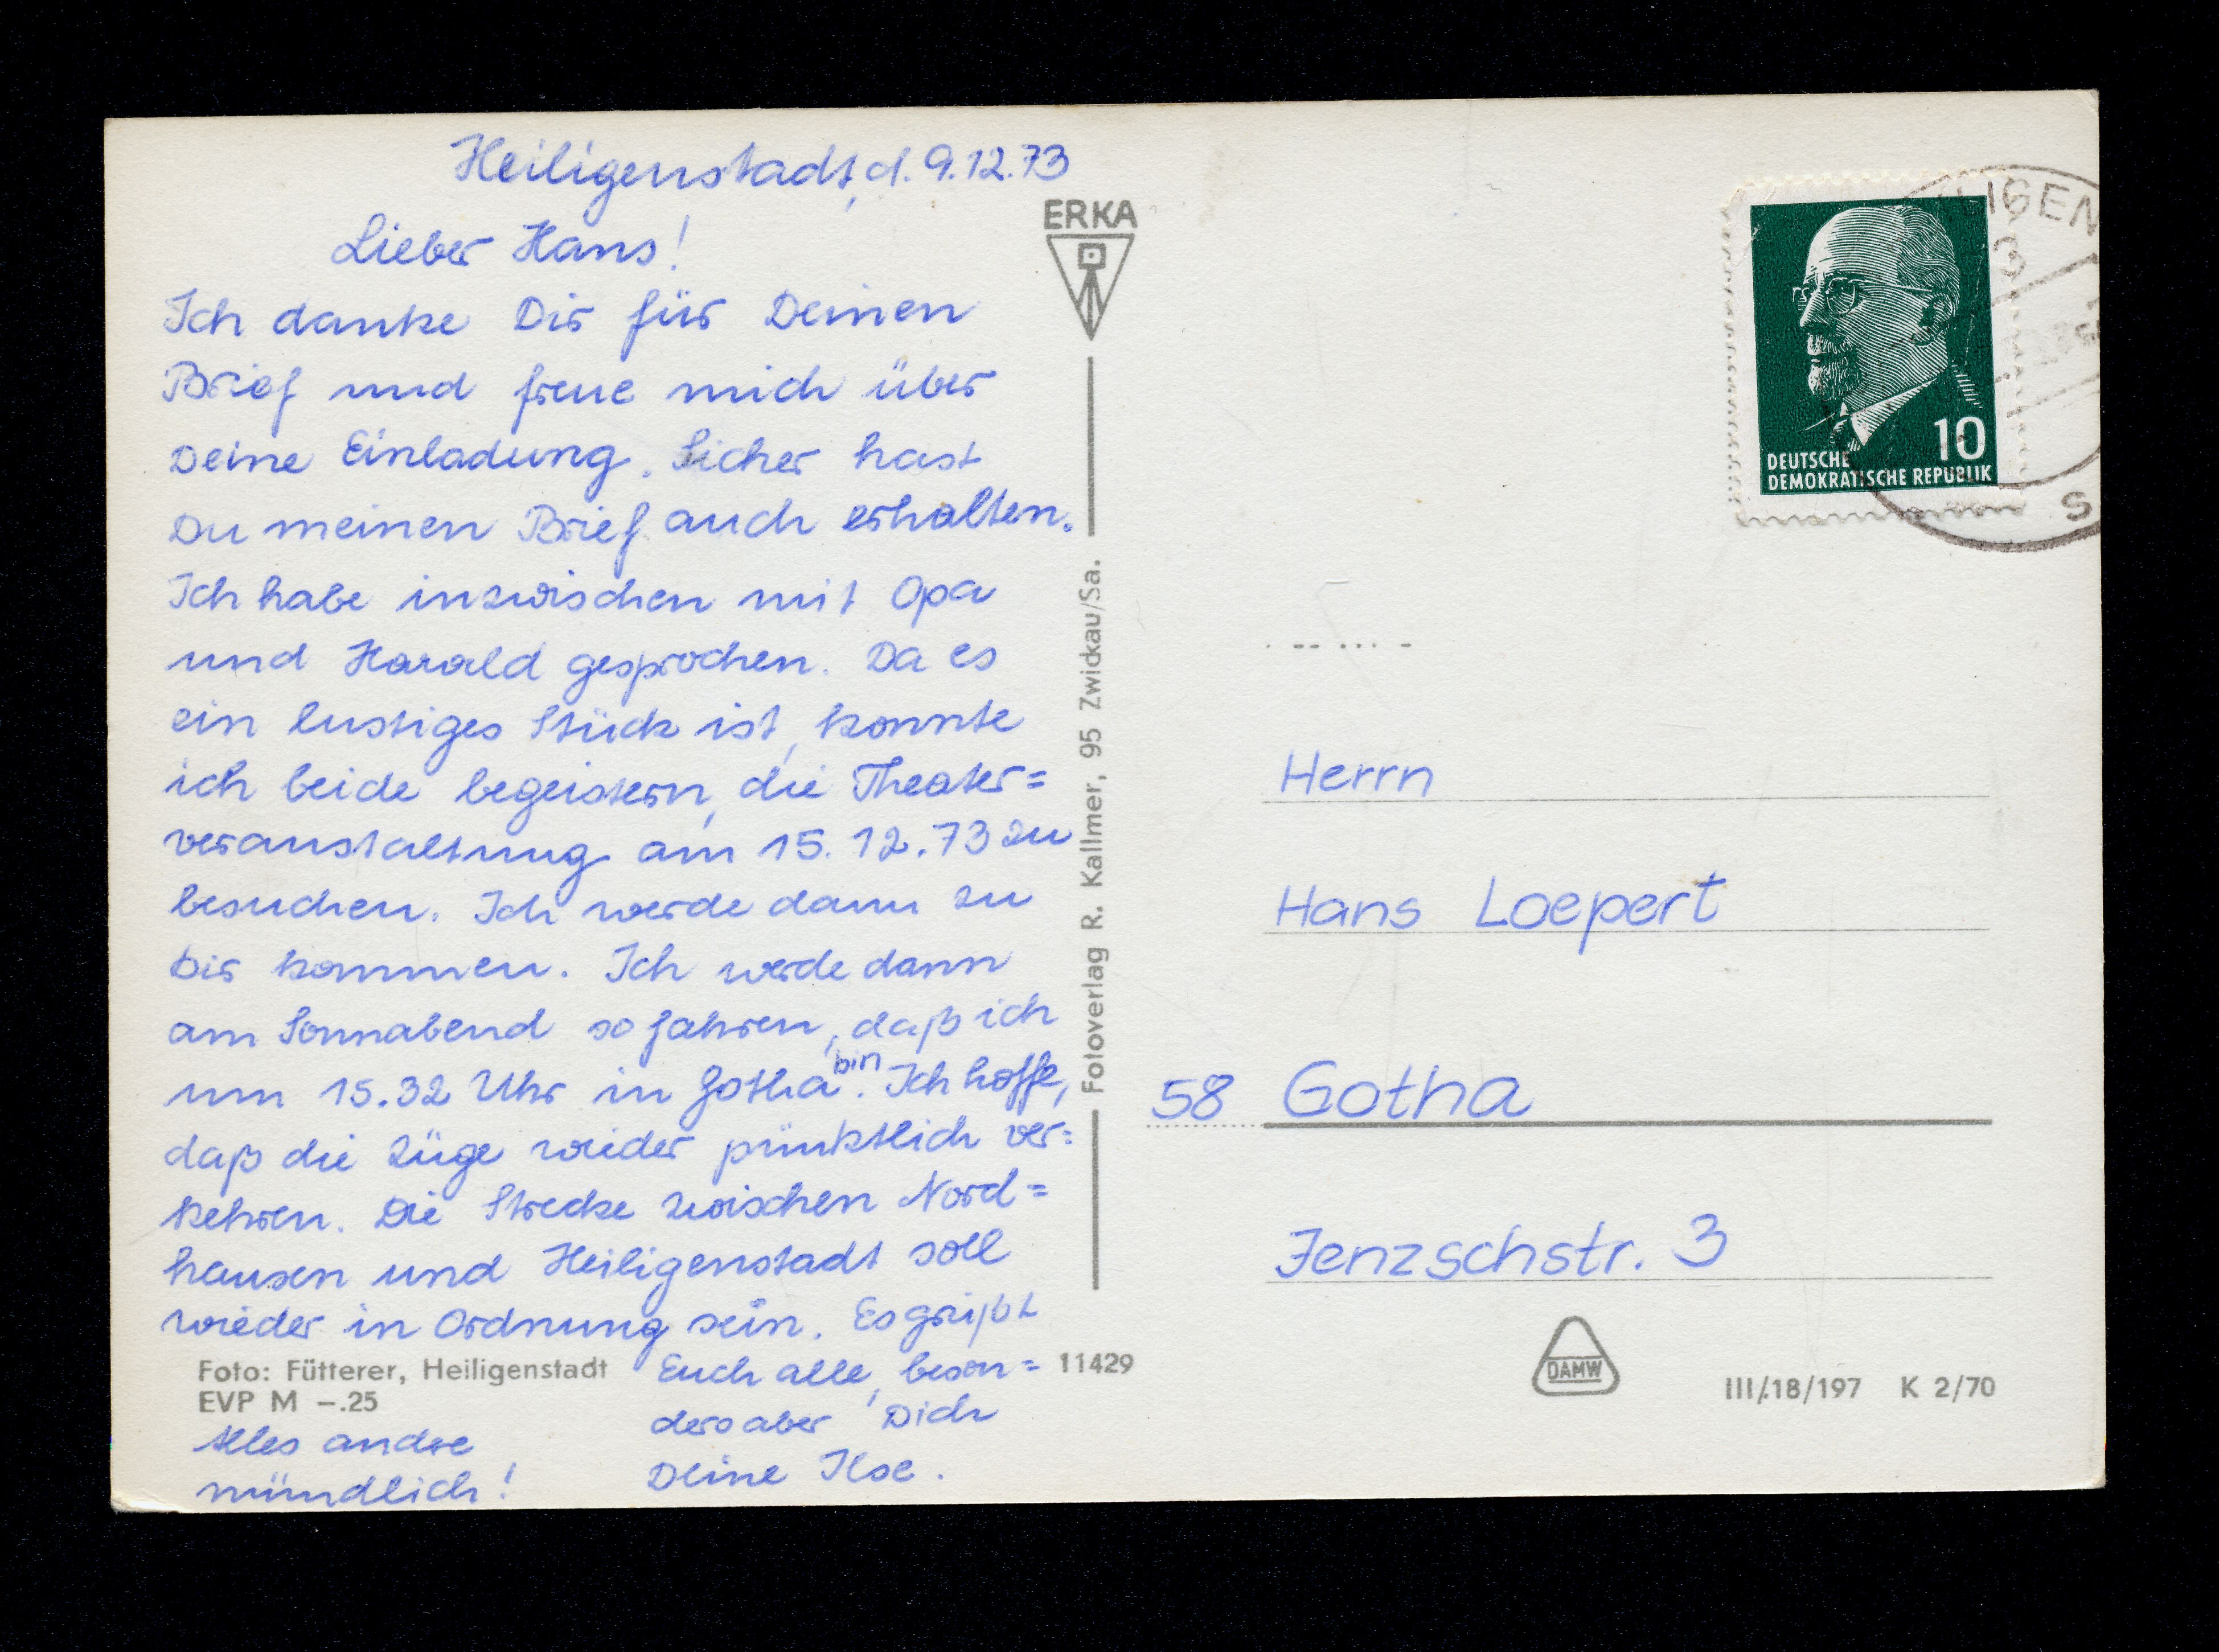 Heiligenstadt, d. 9.12.73
Lieber Hans!
Ich danke Dir für Deinen
Brief und freue mich über
Deine Einladung. Sicher hast
Du meinen Brief auch erhalten.
Ich habe inzwischen mit Opa
und Harald gesprochen. Da es
ein lustiges Stück ist, konnte
ich beide begeistern, die Theater=
veranstaltung am 15.12.73 zu
besuchen. Ich werde dann zu
Dir kommen. Ich werde dann
am Sonnabend so fahren, daß ich
um 15.32 Uhr in Gotha bin. Ich hoffe,
daß die Züge wieder pünktlich ver=
kehren. Die Strecke zwischen Nord=
hausen und Heiligenstadt soll
wieder in Ordnung sein. Es grüßt
Euch alle, beson=
ders aber Dich
Deine Ilse.
Alles andre
mündlich!
Foto: Fütterer, Heiligenstadt
EVP M –.25
11429
ERKA
Fotoverlag R. Kallmer, 95 Zwickau/Sa.
IGEN
S
10
DEUTSCHE
DEMOKRATISCHE REPUBLIK
Herrn
Hans Loepert
58 Gotha
Jenzschstr. 3
DAMW
III/18/197 K 2/70